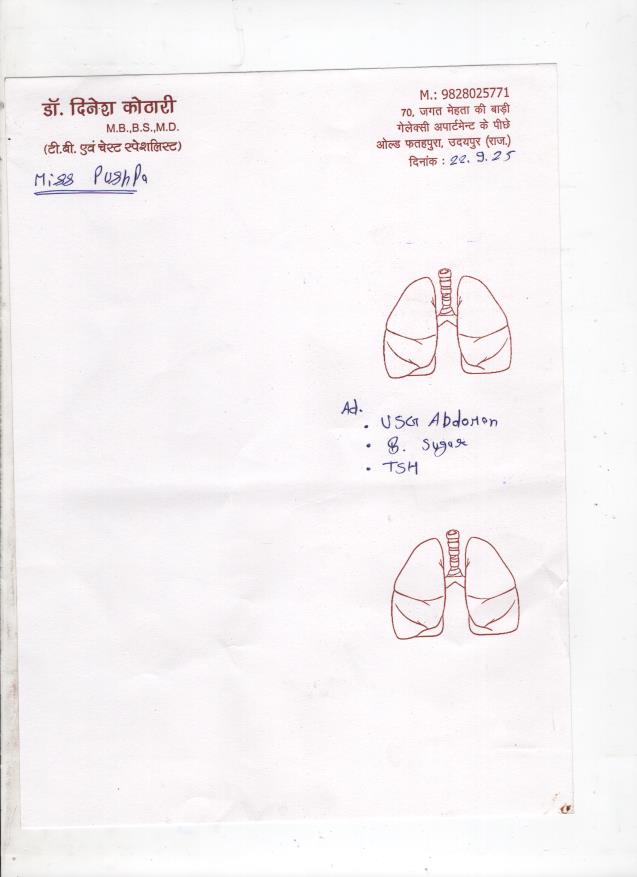 डॉ. दिनेश कोठारी
M.B.,B.S.,M.D.
(टी.बी. एवं चेस्ट स्पेशलिस्ट)
M.: 9828025771
70, जगत मेहता की बाड़ी
गेलेक्सी अपार्टमेन्ट के पीछे
ओल्ड फतहपुरा, उदयपुर (राज.)
दिनांक : 22.9.25
Miss Pushpa
Ad.
• USG Abdomen
• B. Sugar
• TSH